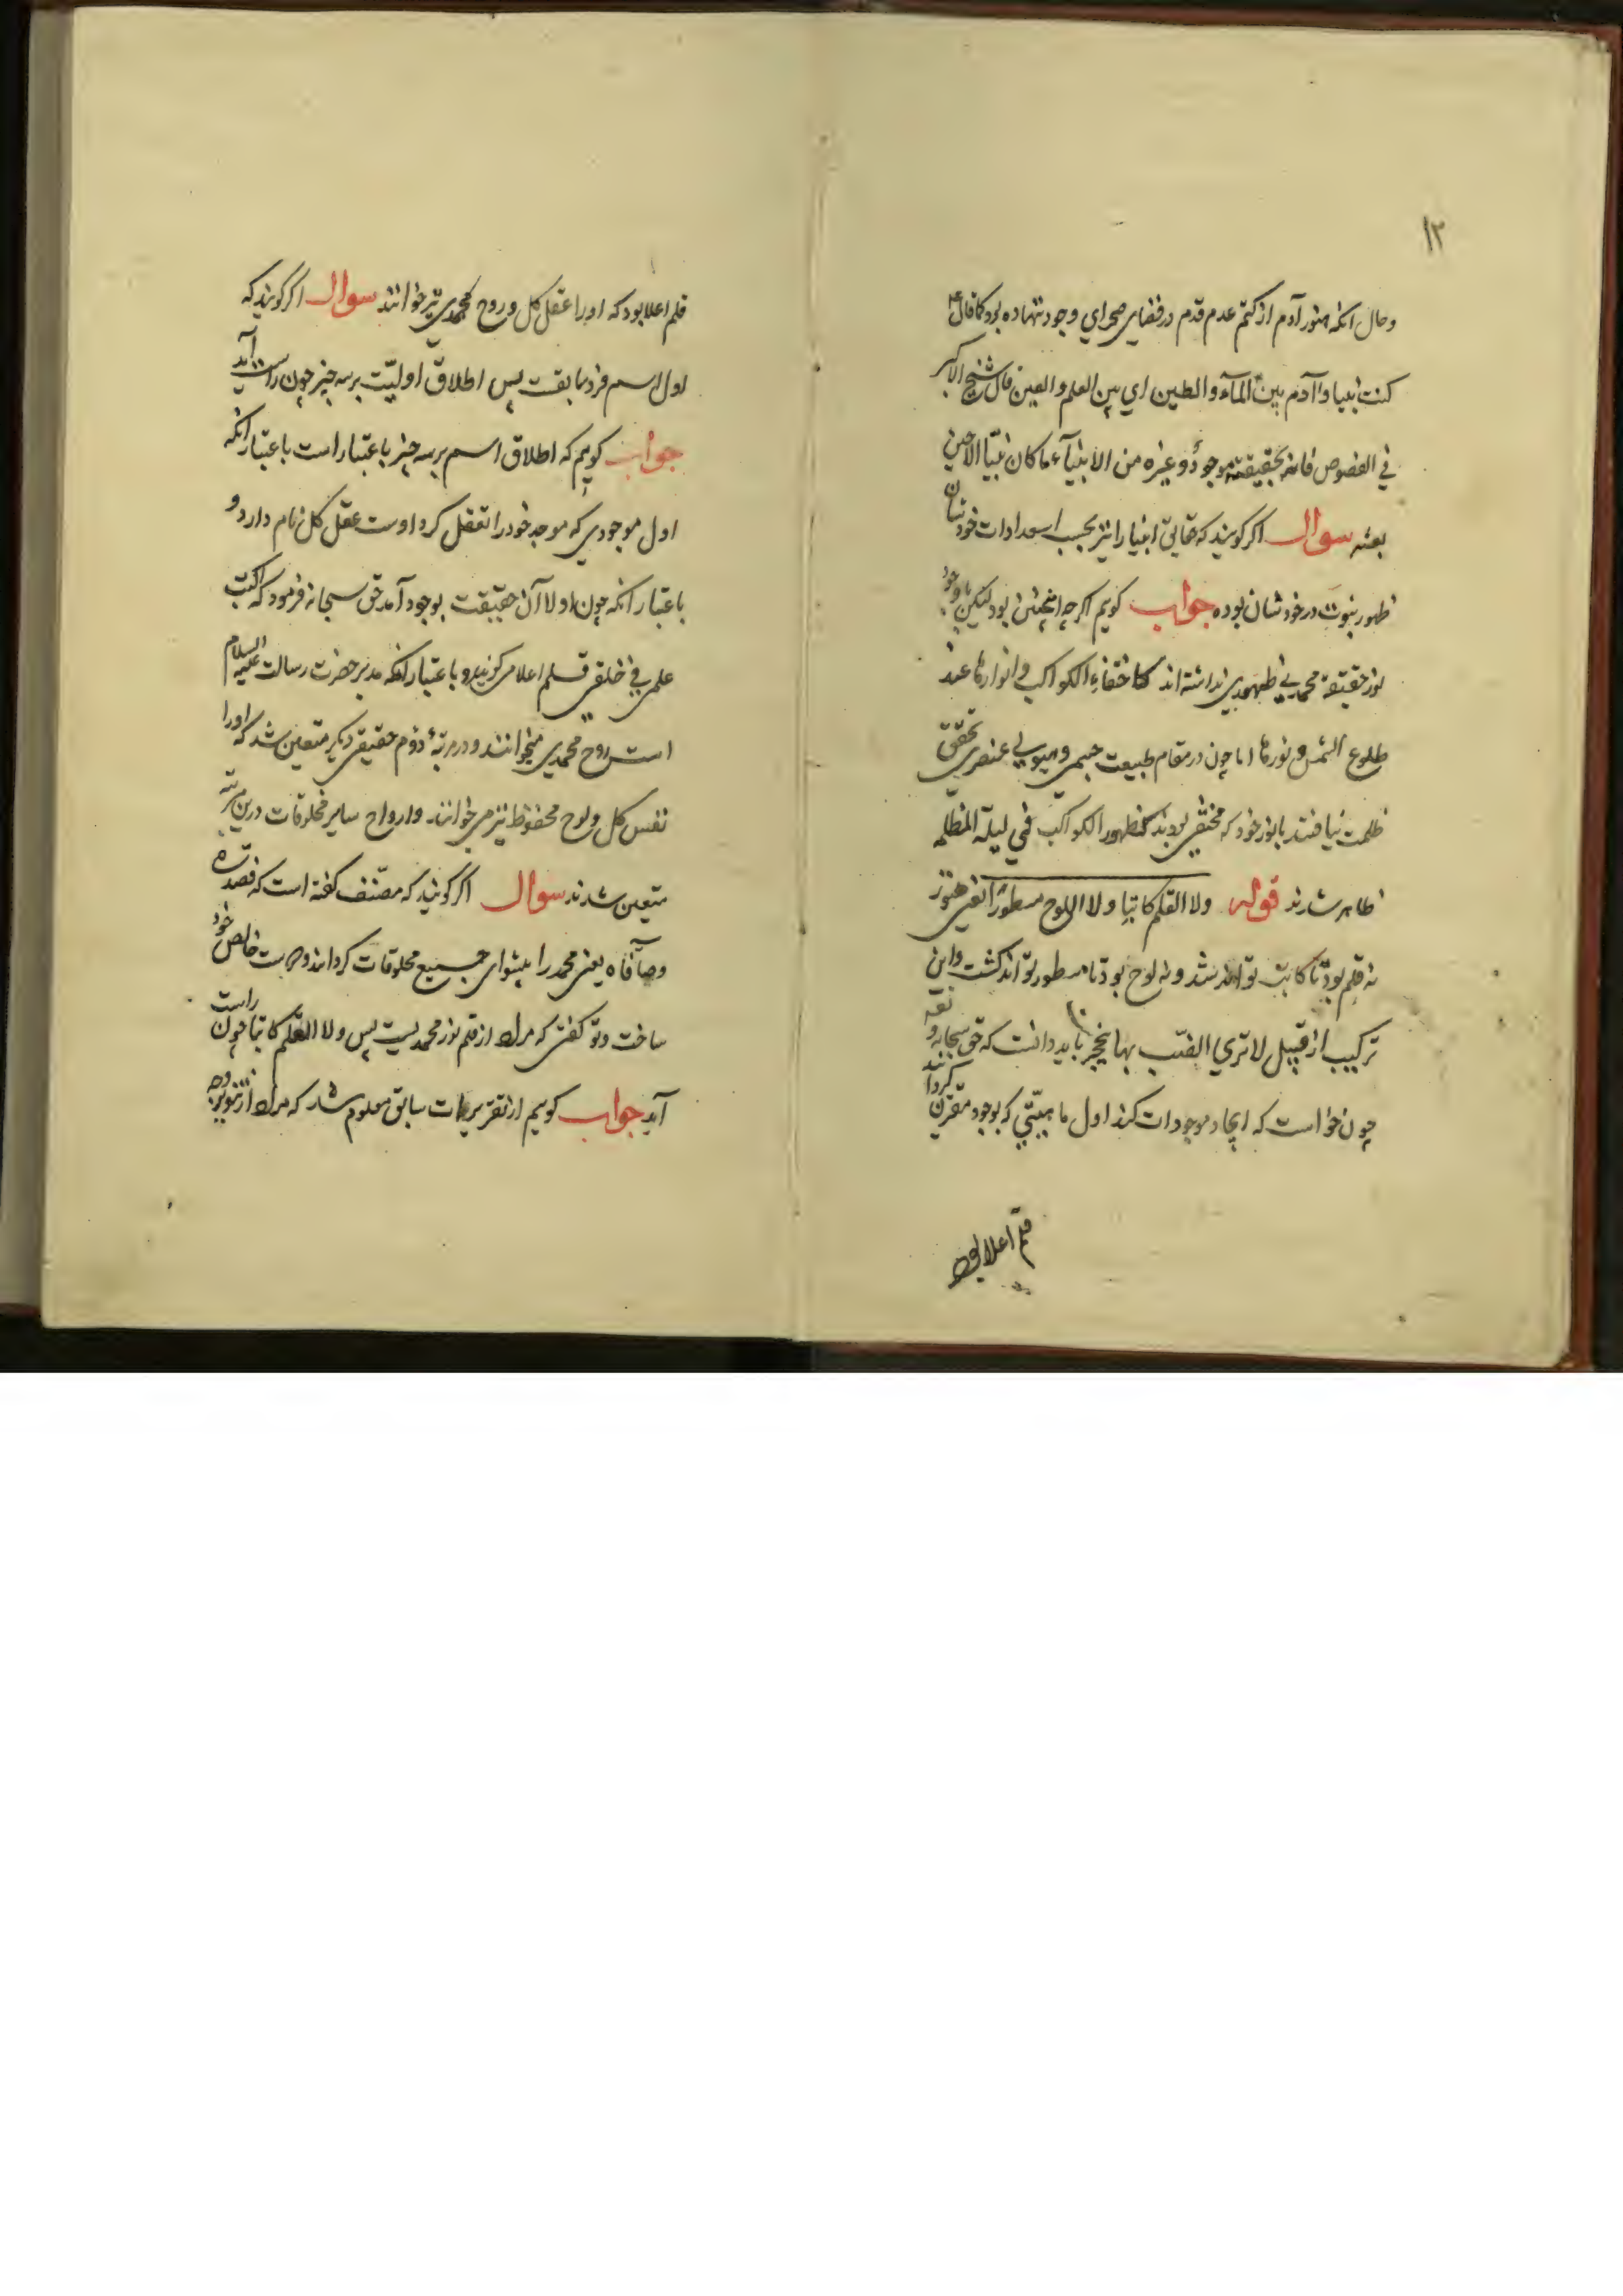 ۱۲
وحال انکه هنوز آدم از کتم عدم قدم در فضای صحرای وجود ننهاده بود کما قال ع
کنت نبیا وآدم بین المآء والطین ای بین العلم والعین قال شیخ الاکبر
فی الفصوص فانه بحقیقته موجودٌ وغیره من الانبیآء ما کان نبیّا الا حین
بعثه سوال اکر کویند که حقایق انبیا را نیز بحسب استعدادات خودشان
ظهور نبوت در خودشان بوده جواب کویم اکرچه انچنین بود لیکن با وجود
نور حقیقة محمدی ظهوری نداشته اند کاختفاء الکواکب وانوارها عند
طلوع الشمس ونورها اما چون در مقام طبیعت جسمی وهیولی عنصری تحقق
ظلمت نیافتند با نور خود که مختفی بودند کظهور الکواکب فی لیلة المظلمه
ظاهر شدند قوله ولا القلم کاتبا ولا اللوح مسطوراً یعنی هنوز
نه قلم بود تا کاتب تواند شد ونه لوح بود تا مسطور تواند کشت واین
ترکیب از قبیل لا تری الضب بها ینجحر باید دانست که حق سبحانه وتعه
چون خواست که ایجاد موجودات کند اول ماهیتی که بوجود مقرن کردانند
قلم اعلا بود
قلم اعلا بود که او را عقل کل وروح محمدی نیز خوانند سوال اکر کویند که
اول اسم فرد سابقت پس اطلاق اولیّت بر سه چیز چون راست آید
جواب کویم که اطلاق اسم بر سه چیز باعتبار است باعتبار انکه
اول موجودی که موجد خود را تعقل کرد اوست عقل کل نام دارد و
باعتبار انکه چون اولا آن حقیقت بوجود آمد حق سبحانه فرمود که اکتب
علمی فی خلقی قلم اعلا می کویند وباعتبار انکه مدبر حضرت رسالت علیه السلام
است روح محمدی میخوانند ودر مرتبهٔ دوم حقیقی دیکر متعین شد که او را
نفس کل ولوح محفوظ نیز می خوانند وارواح سایر مخلوقات درین مرتبه
متعین شدند سوال اکر کویند که مصنف کفته است که فصدره
وصآفاه یعنی محمد را پیشوای جمیع مخلوقات کردانید و خالص خود
ساخت وتو کفتی که مراد از قلم نور محمدیست پس ولا القلم کاتبا چون راست
آید جواب کویم از تقریرات سابق معلوم شد که مراد از